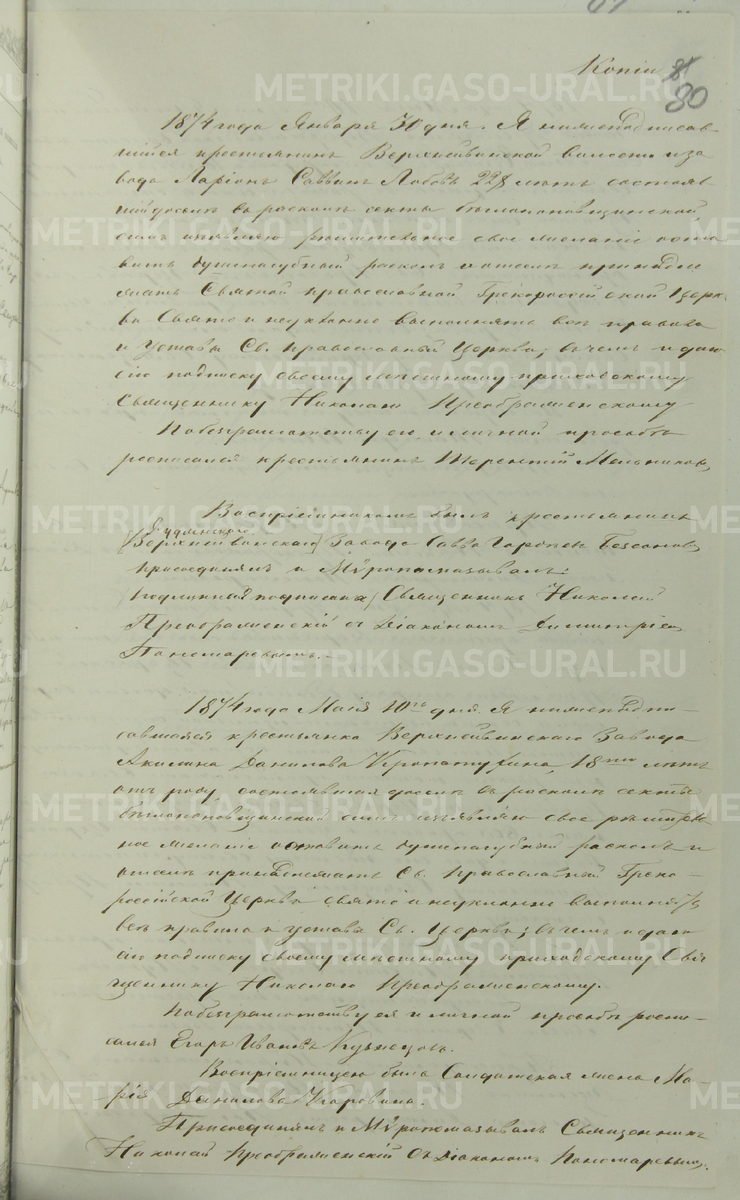 Копіи
80
1874 года Января 30 дня. Я нижеподписав-
шійся крестьянинъ Верхнейвинской волости и за
вода Ларіонъ Саввинъ Лобовъ 22х лѣтъ состояв
шій досель въ расколѣ секты бѣглопоповщинской
симъ изъявляю рѣшительное свое желаніе оста
вить душепагубный расколъ и отселѣ принадле
жать Святой православной Грекороссійской Церк
ви Свято и неуклонно выполнять всѣ правила
и Уставы Св. православный Церкви; въ чемъ и даю
сію подписку своему мѣстному приходскому
Священнику Николаю Преображенскому
По безграмотству его и личной просьбѣ
росписался крестьянинъ Терентій Мельниковъ
Воспріемникомъ былъ крестьянинъ
Верхнейвинскаго Завода Савва
присоединялъ и Мѵропомазывалъ:
подлинный подписали Священникъ Николай
Преображенскій съ Діакономъ Димитріемъ
Пономаревымъ.
1874 года Маія 10го дня. Я нижеподпи-
савшаяся крестьянка Верхнейвинскаго Завода
Акилина Данилова 18ти лѣтъ
отъ роду состоявшая досель въ расколѣ секты
бѣглопоповщинской симъ изъявляю свое рѣшитель
ное желаніе оставить душепагубный расколъ и
отселѣ принадлежать Св. Православный Греко-
россійской Церкви свято и неуклонно выполнять
всѣ правила и уставы Св. Церкви; въ чемъ и даю
сію подписку своему мѣстному приходскому Свя
щеннику Николаю Преображенскому.
По безграмотству ея и личной просьбѣ роспи-
сался Егоръ Ивановъ Кузнецовъ.
Воспріемницею была Солдатская жена Ма-
рія Данилова
Присоединялъ и Мѵропомазывалъ Священникъ
Николай Преображенскій съ Діакономъ Пономаревымъ
METRIKI.GASO-URAL.RU